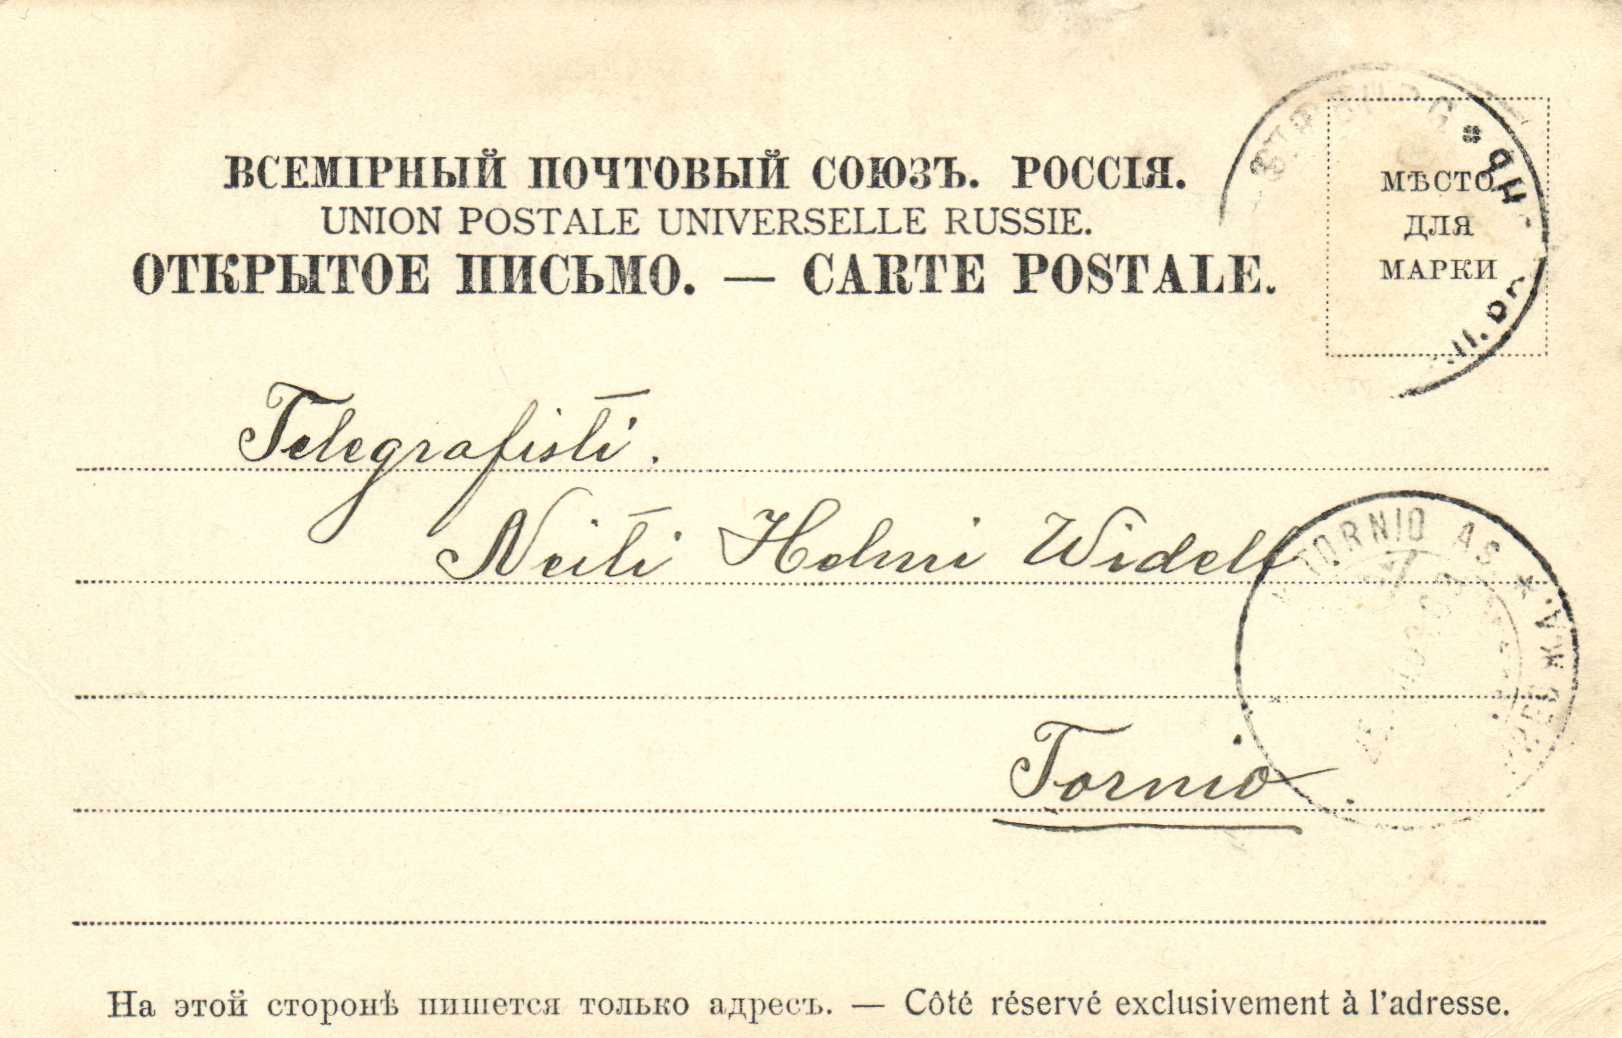 ВСЕМІРНЫЙ ПОЧТОВЫЙ СОЮЗЪ. РОССІЯ.
UNION POSTALE UNIVERSELLE RUSSIE.
ОТКРЫТОЕ ПИСЬМО. — CARTE POSTALE.
МѢСТО
ДЛЯ
МАРКИ
Telegrafisti.
Neiti Helmi Widell
TORNIO AS
Tornio
На этой сторонѣ пишется только адресъ. — Côté réservé exclusivement à l'adresse.